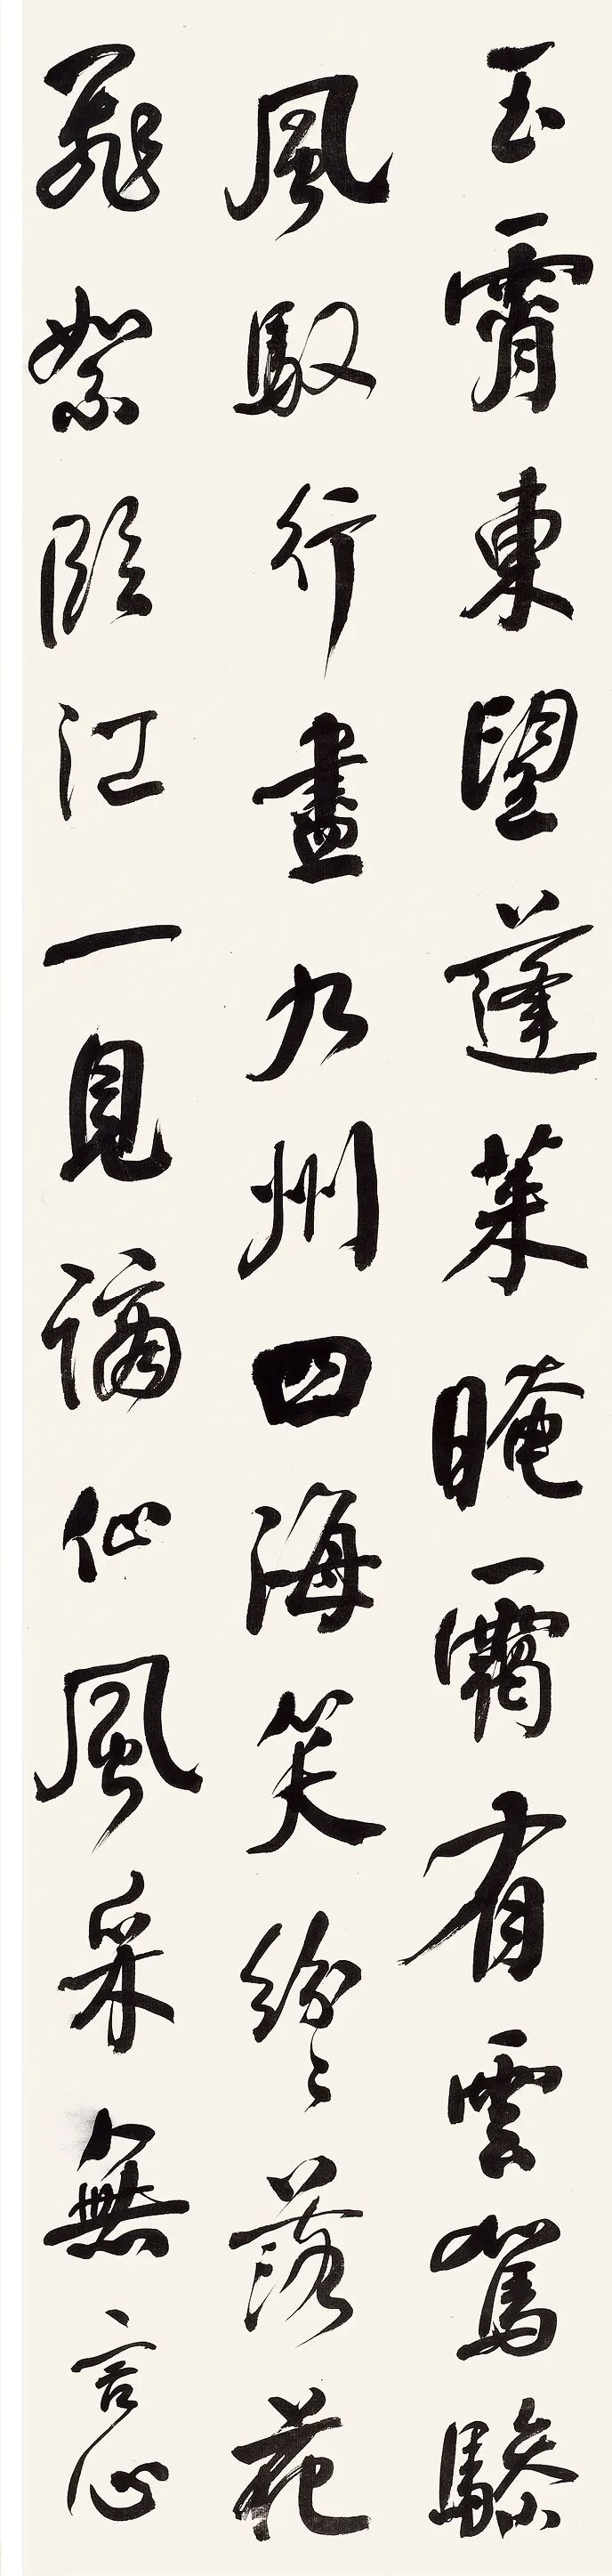 玉霄東望蓬萊晻靄有雲駕驂
風馭行盡九州四海笑紛〻落花
飛絮臨江一見謫仙風采無言心